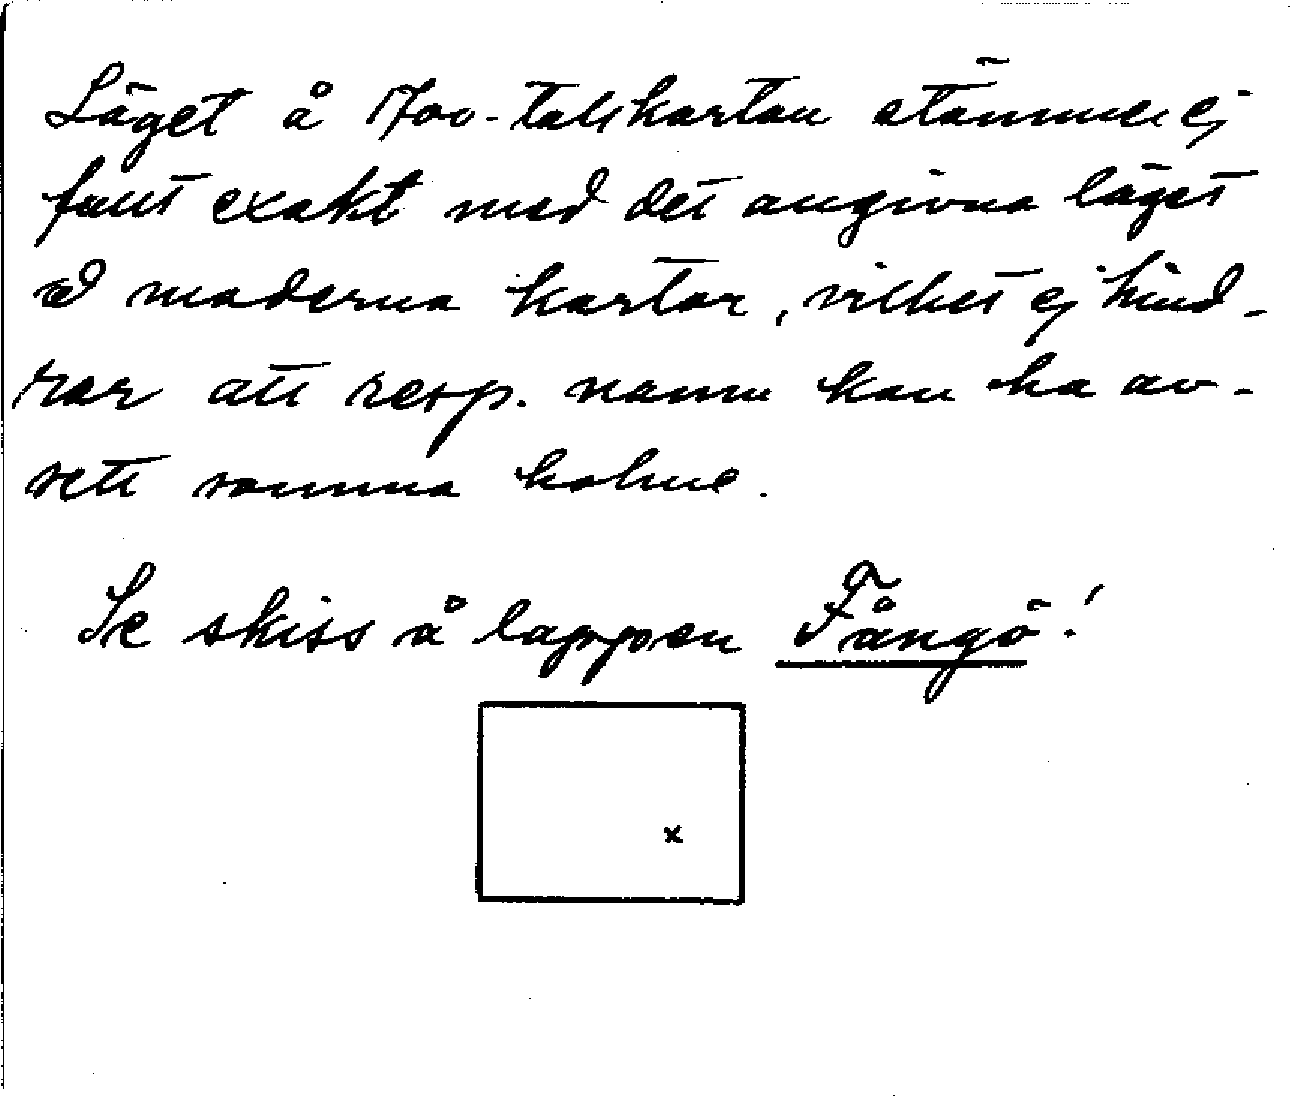 Läget å 1700-talskartan stämmer ej
fullt exakt med det angivna läget
å moderna kartor, vilket ej hind-
rar att resp. namn kan ha av-
sett samma holme.
Se skiss å lappen Fångö!
x